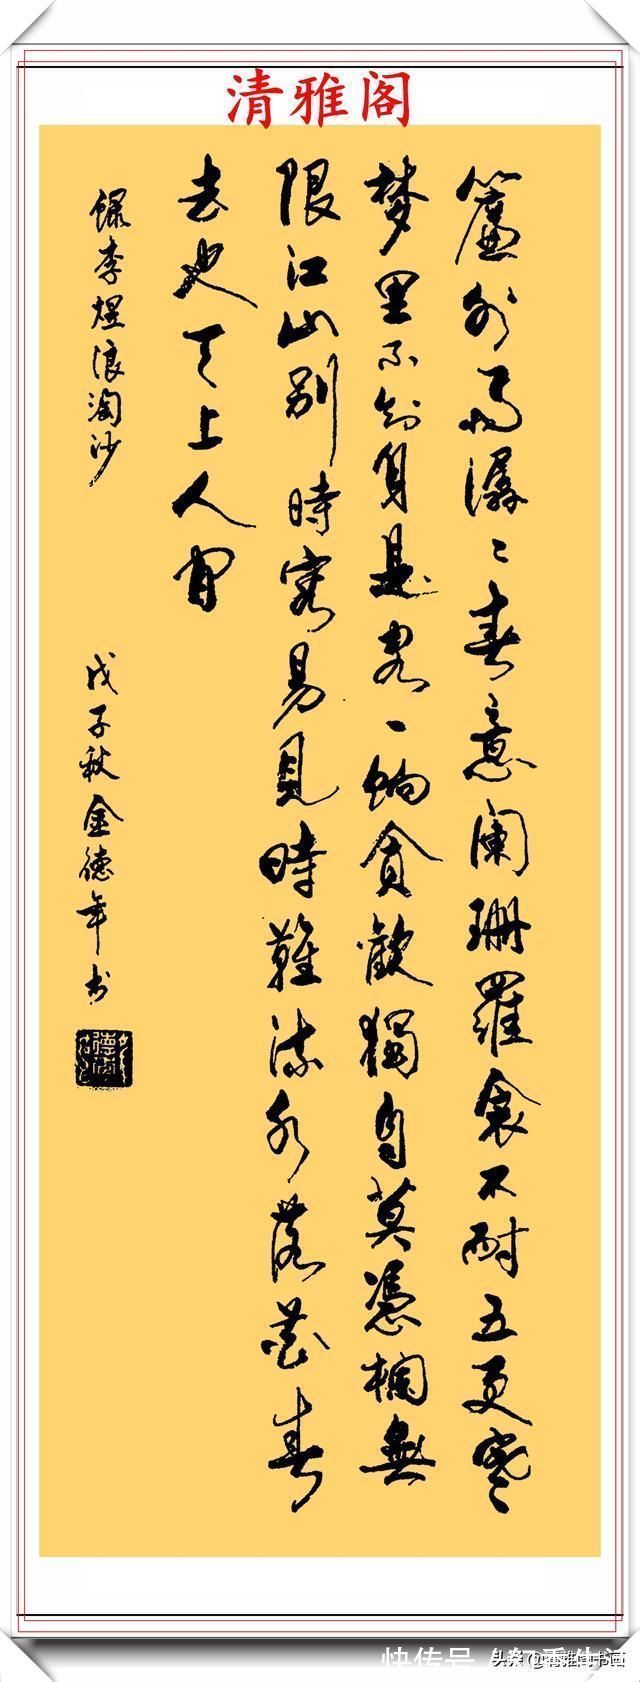 清雅阁
簾外雨潺〻春意闌珊羅衾不耐五更寒
梦里不知身是客一晌貪歡獨自莫憑欄無
限江山别時容易見時難流水落花春
去也天上人间
録李煜浪淘沙
戊子秋金德年书
快传号
头条@清雅阁书画